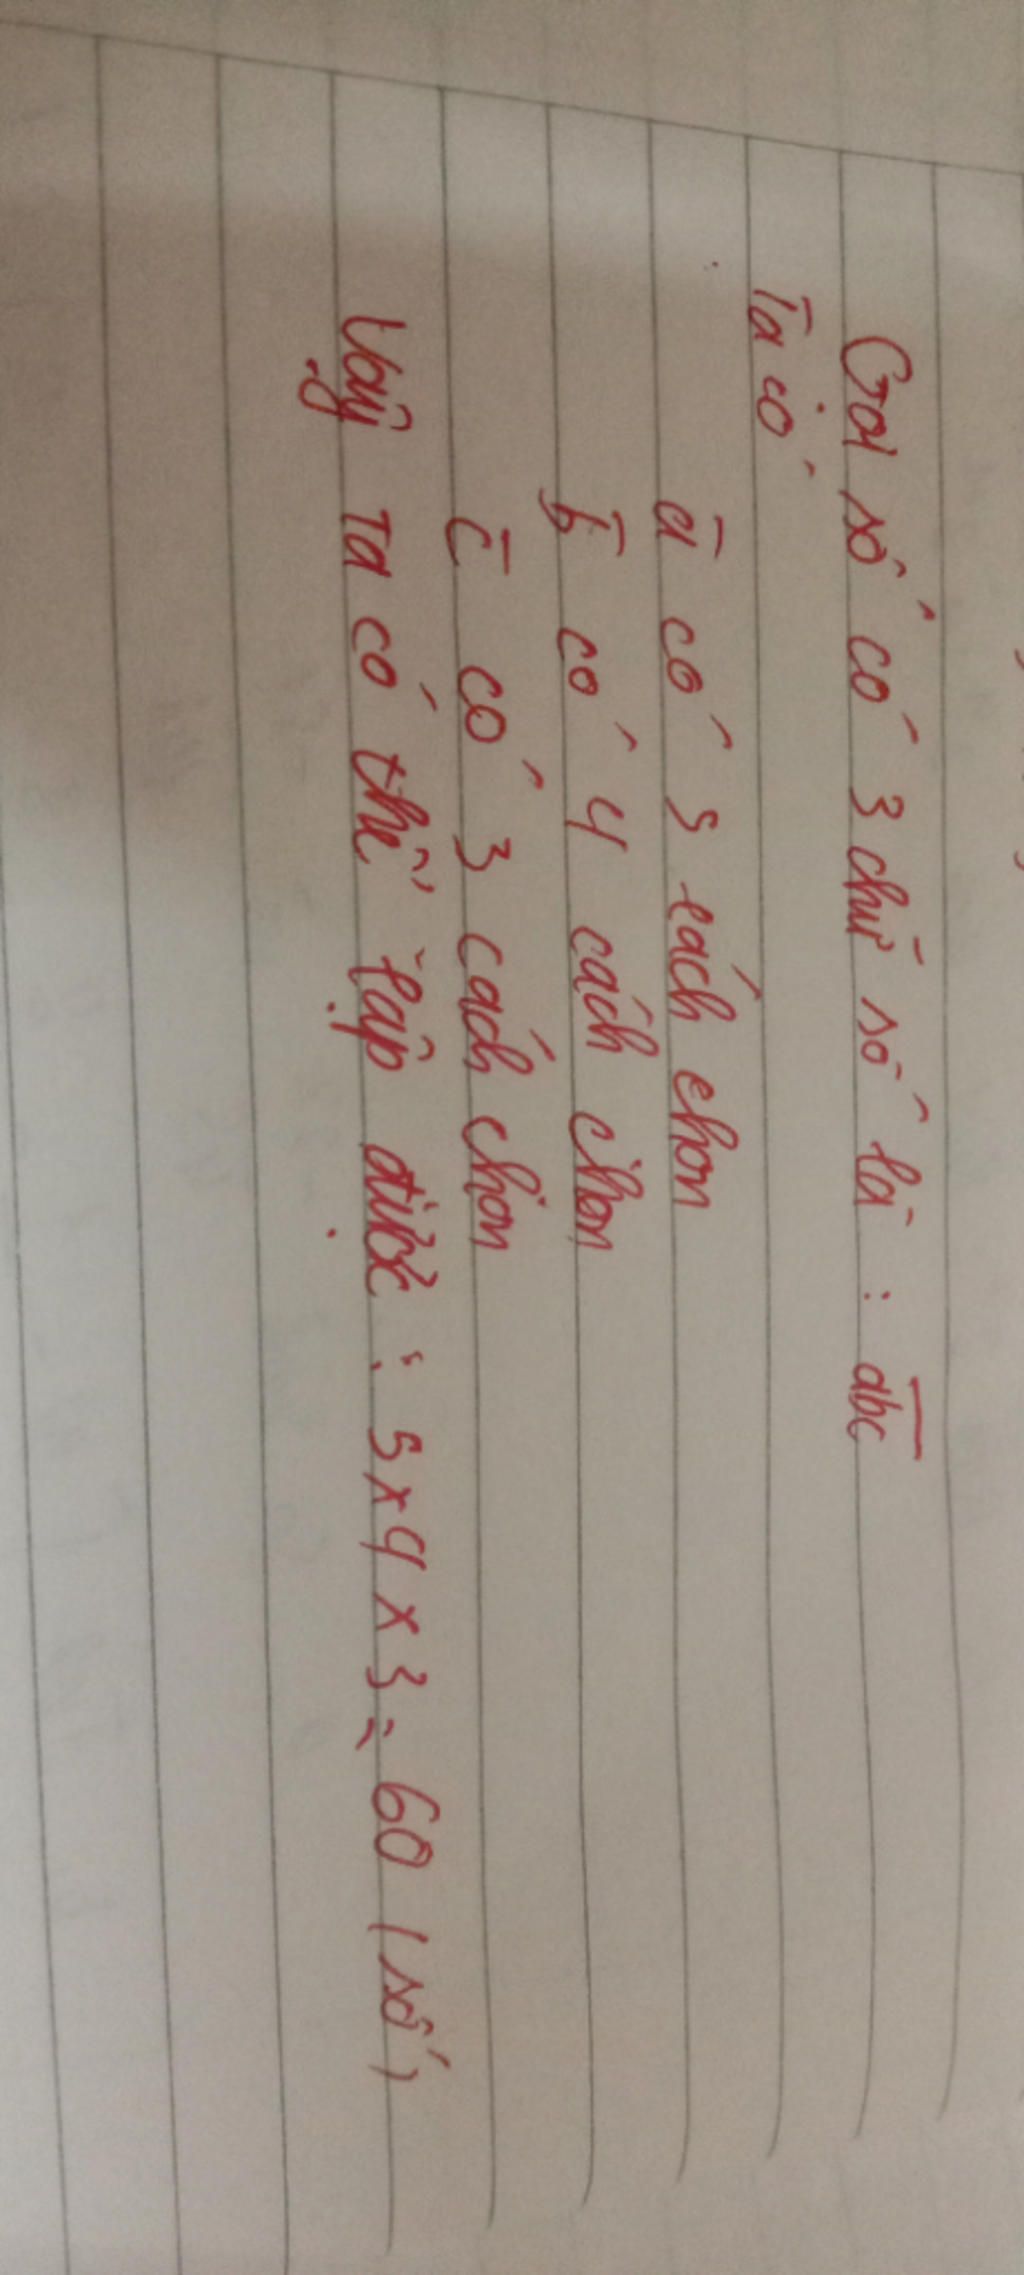 Gọi số có 3 chữ số là : abc
Ta có
a có 5 cách chọn
b có 4 cách chọn
c có 3 cách chọn
Vậy ta có thể lập được : 5 x 4 x 3 = 60 (số)